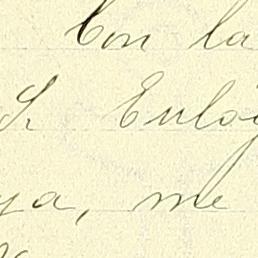 Con la
Eulog
ya, me